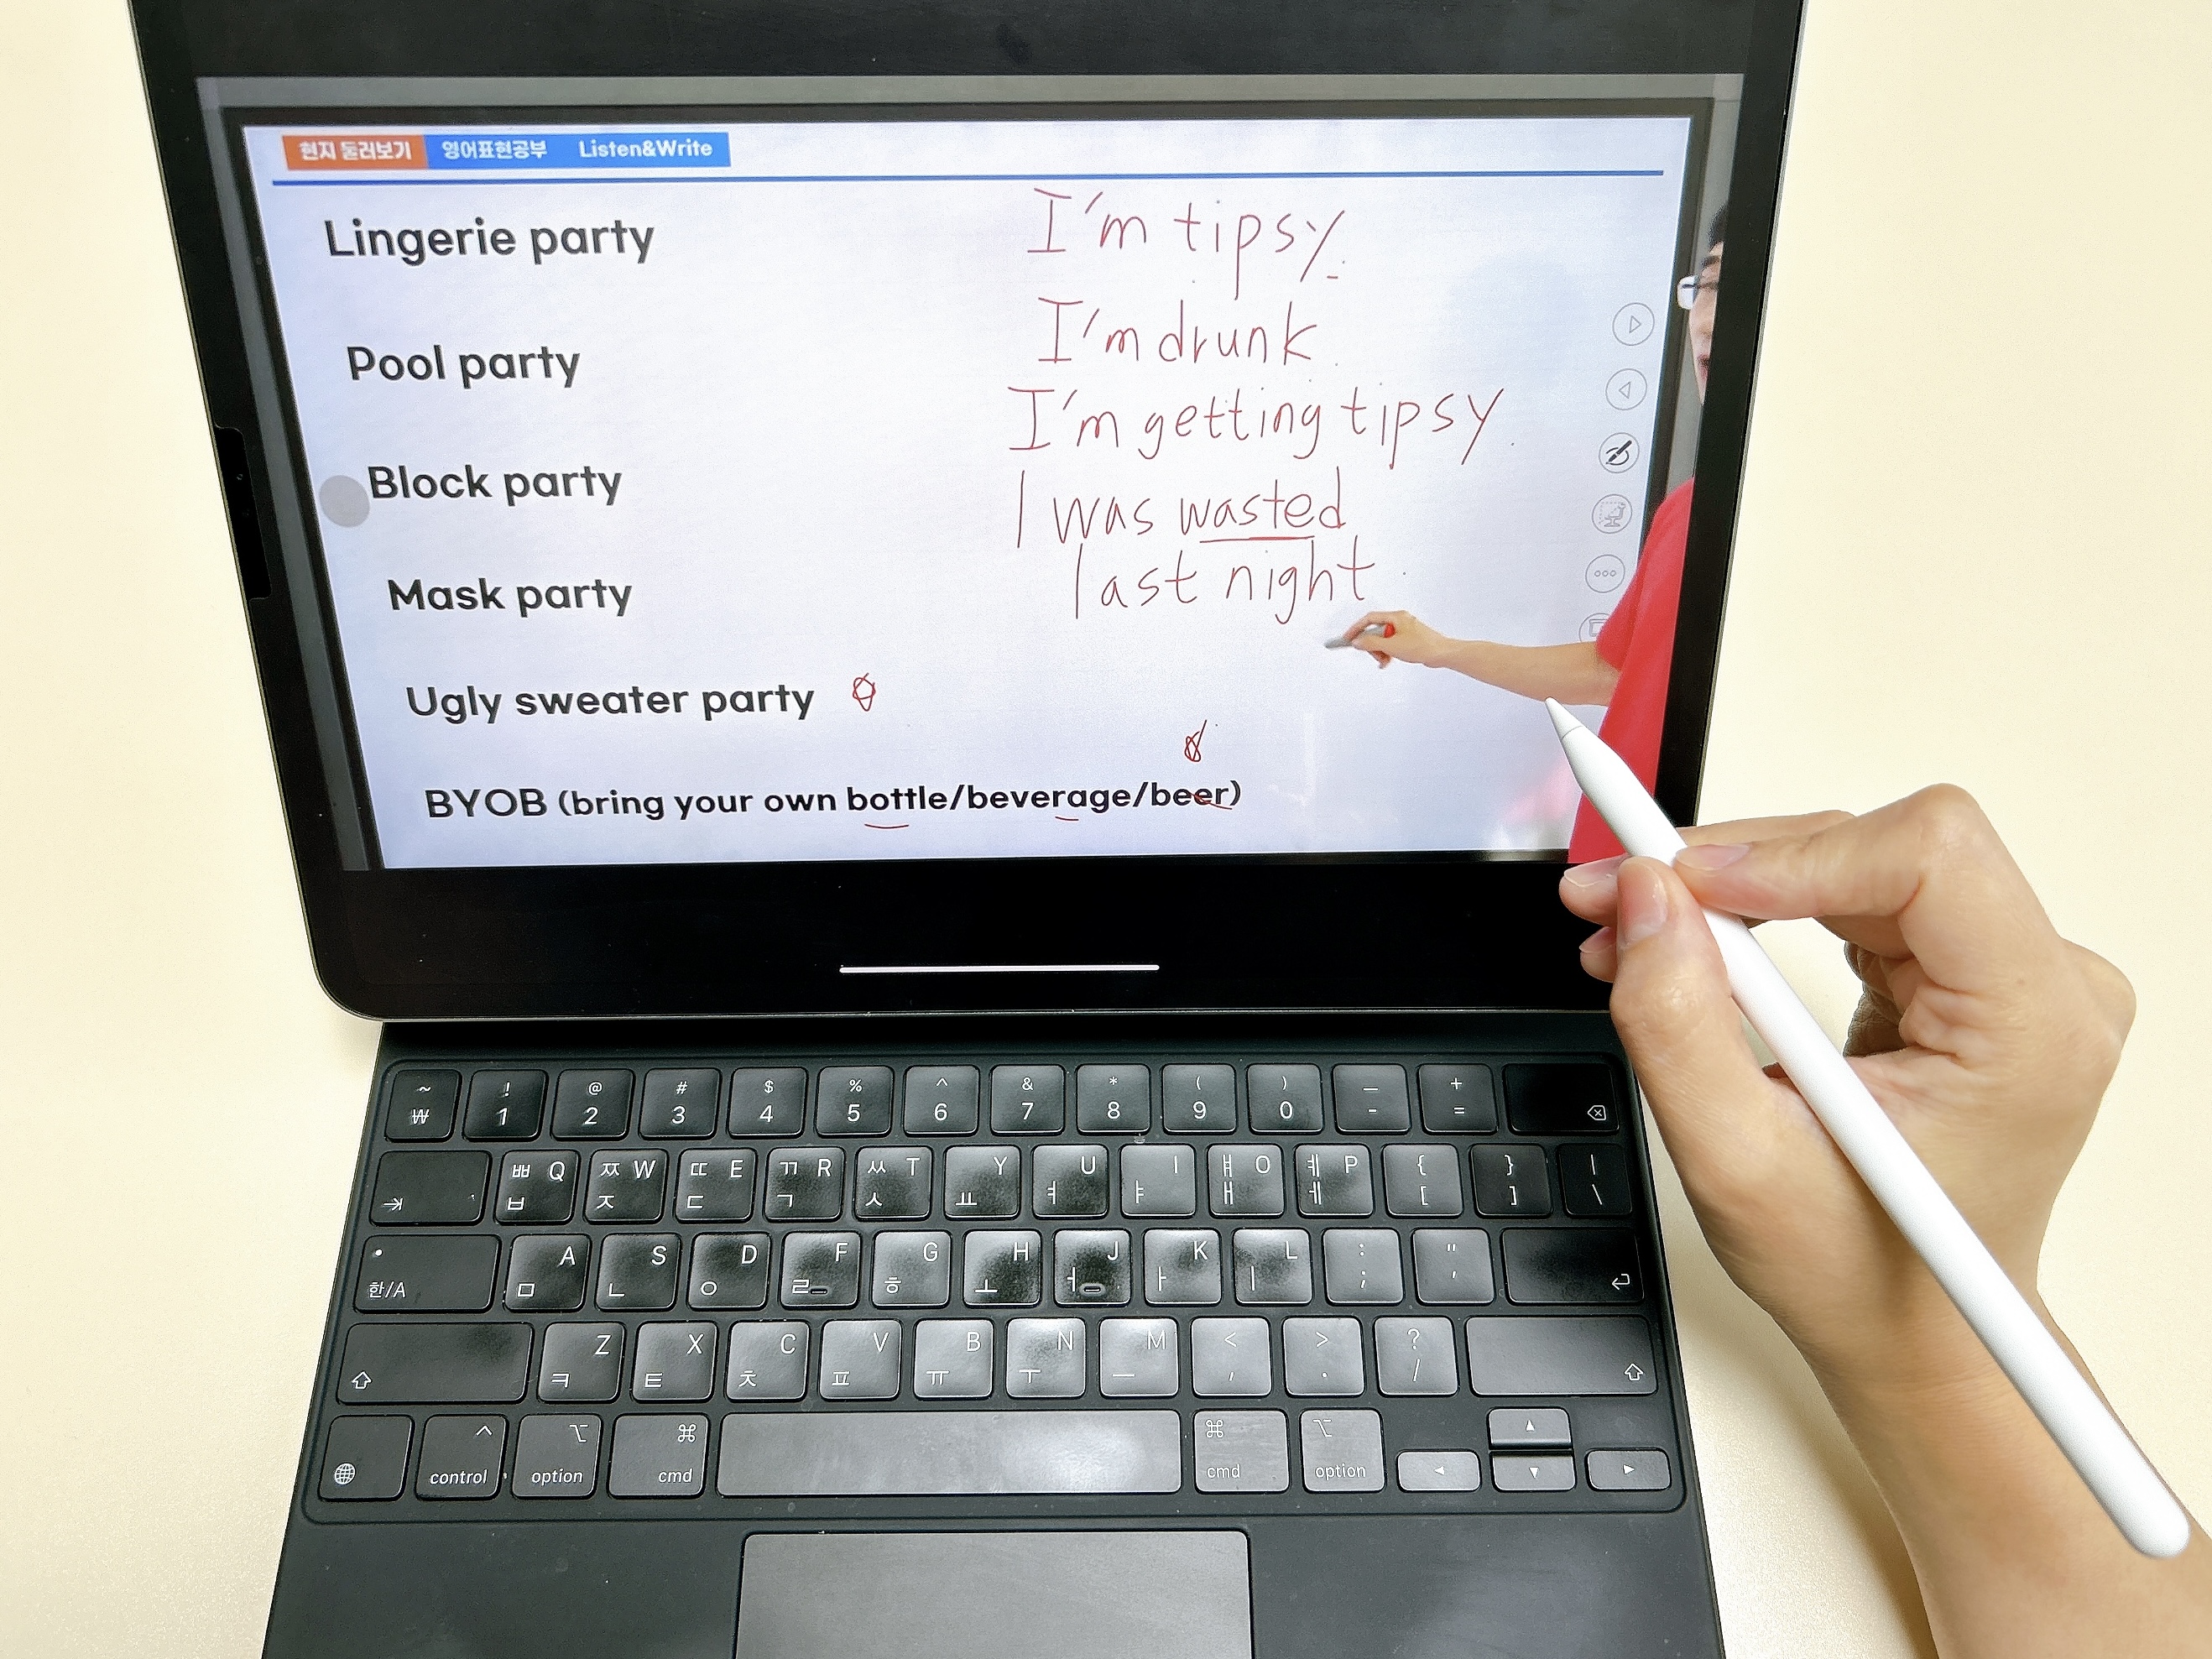 현지 둘러보기 영어표현공부 Listen&Write
Lingerie party
Pool party
Block party
Mask party
Ugly sweater party
BYOB (bring your own bottle/beverage/beer)
I'm tipsy.
I'm drunk.
I'm getting tipsy.
I was wasted
last night.
~ ! @ # $ % ^ & * ( ) — +
₩ 1 2 3 4 5 6 7 8 9 0 - =
ㅃ Q ㅉ W ㄸ E ㄲ R ㅆ T Y U I ㅒ O ㅖ P { } |
ㅂ ㅈ ㄷ ㄱ ㅅ ㅛ ㅕ ㅑ ㅐ ㅔ [ ] \
A S D F G H J K L : "
한/A ㅁ ㄴ ㅇ ㄹ ㅎ ㅗ ㅓ ㅏ ㅣ ; '
Z X C V B N M < > ?
ㅋ ㅌ ㅊ ㅍ ㅠ ㅜ ㅡ , . /
control option cmd cmd option